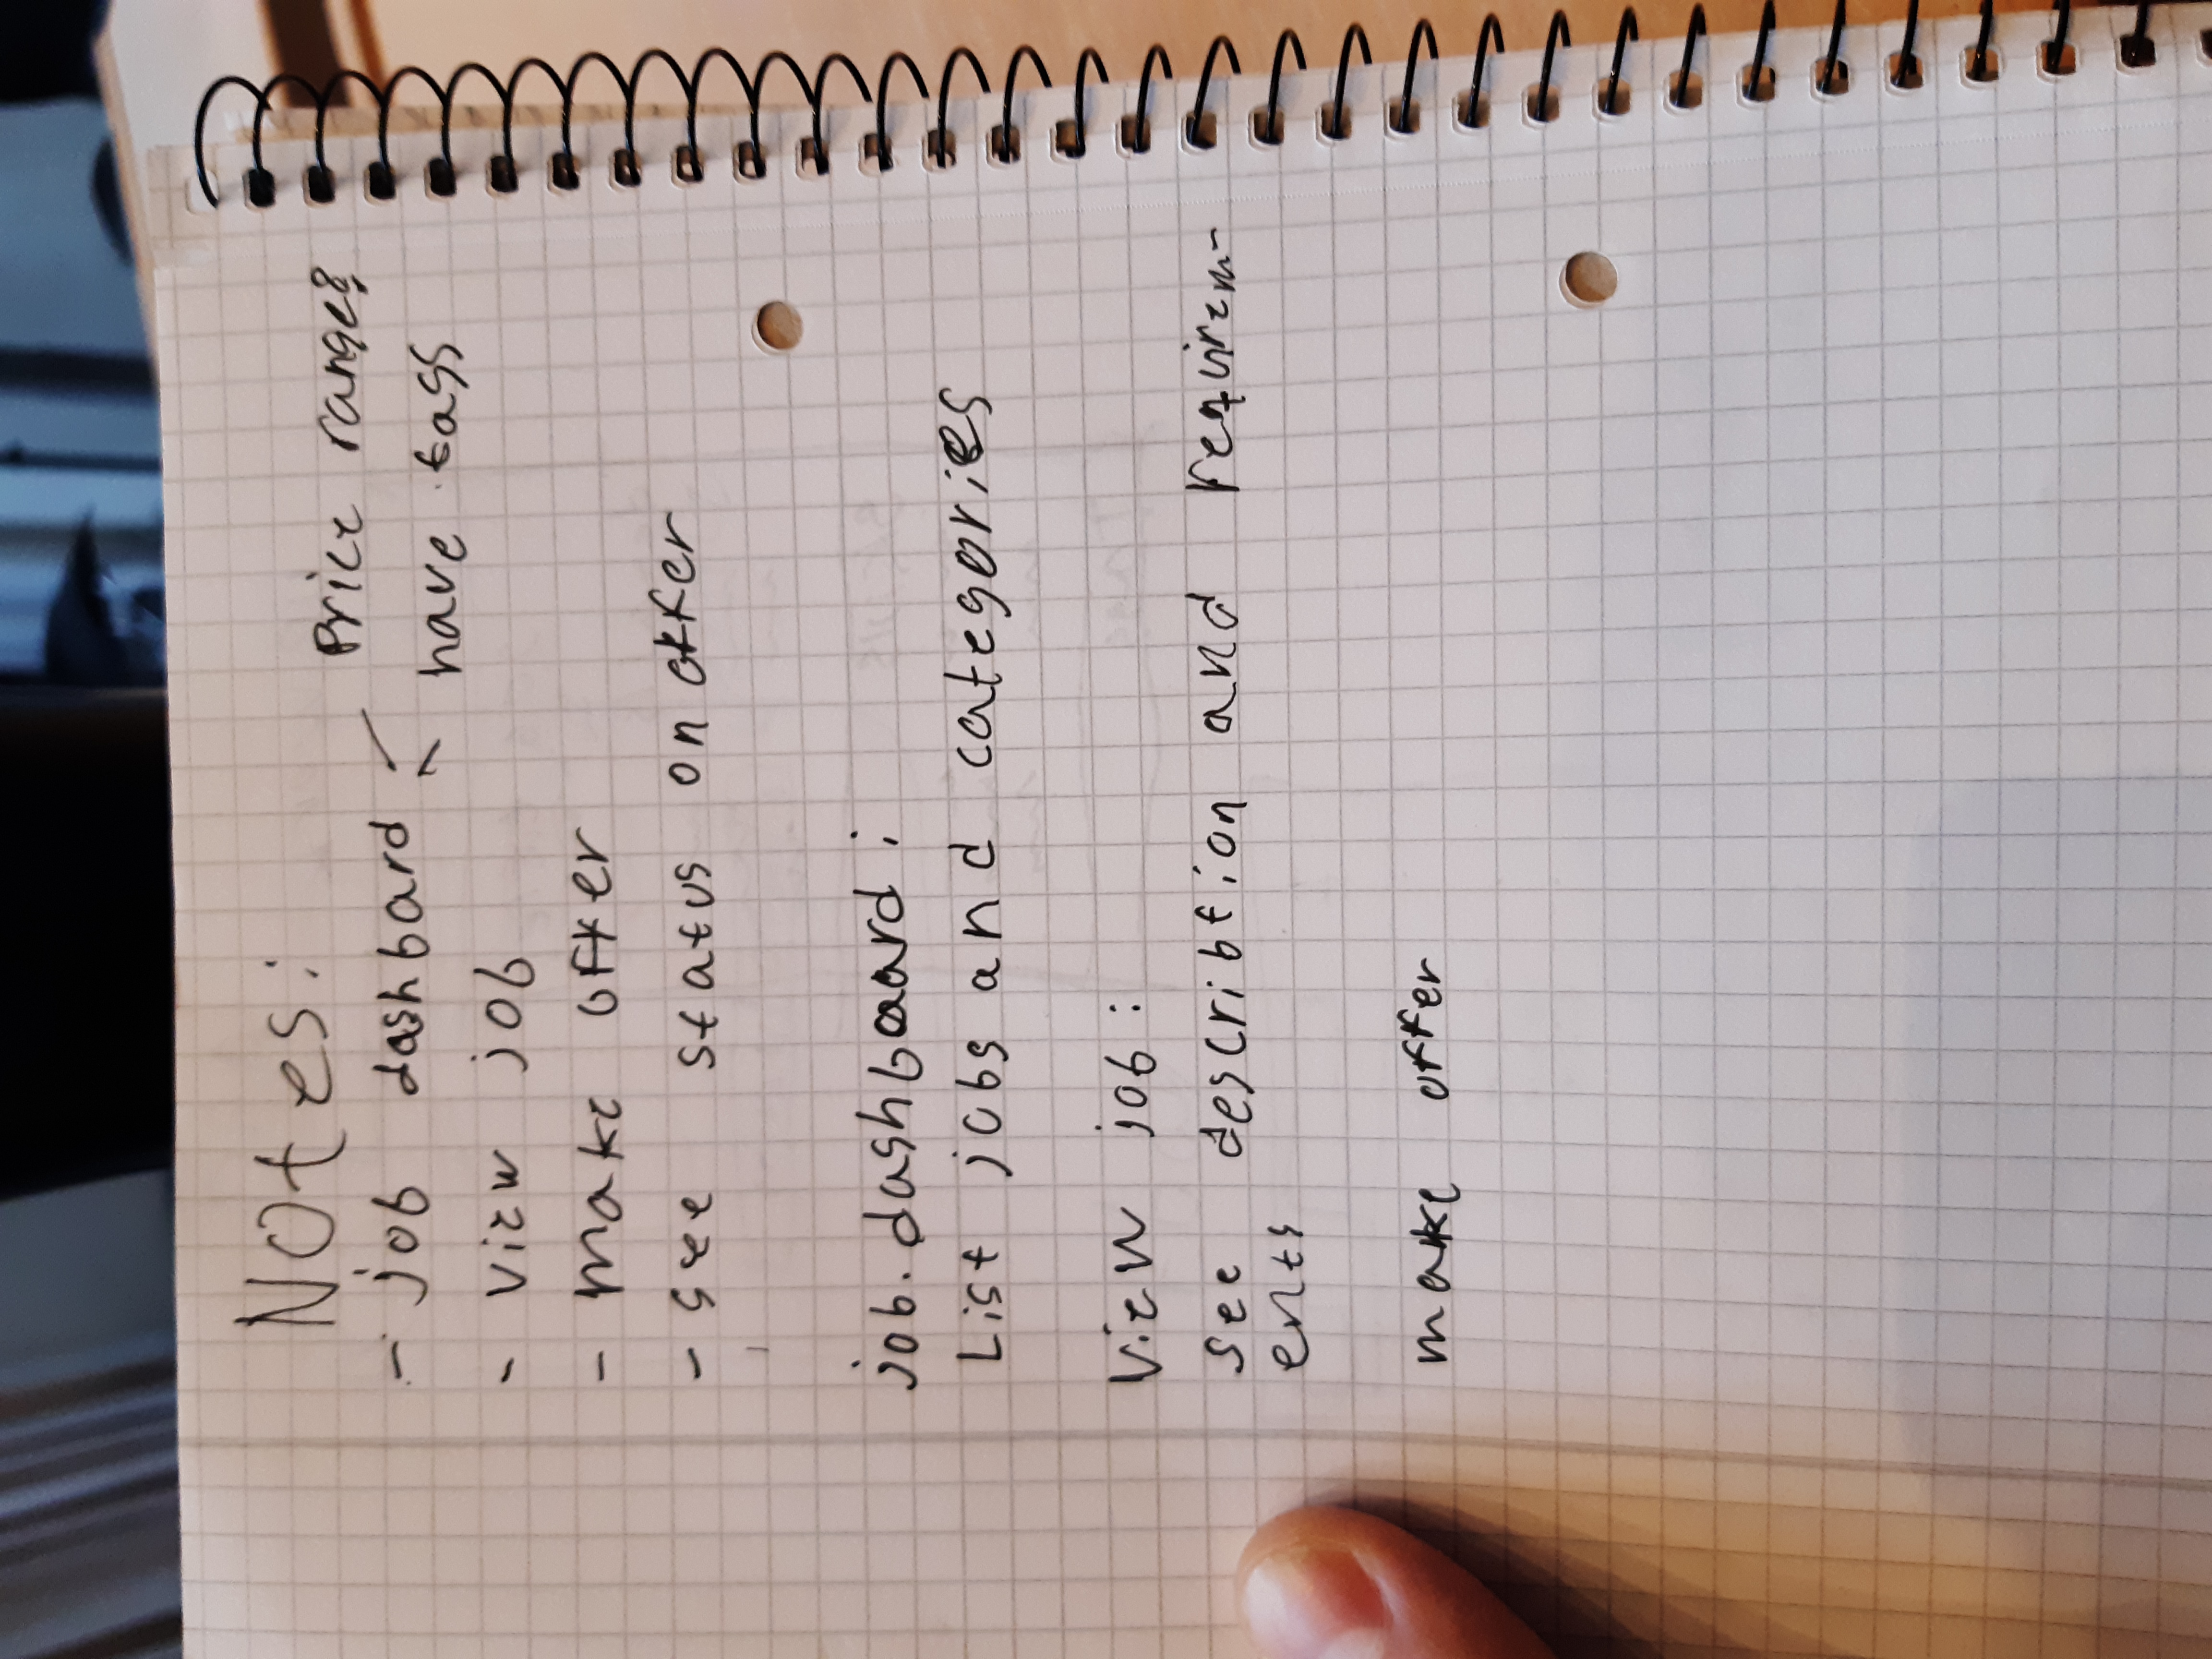 Notes:
Price range?
- job dashbard
have tags
- view job
- make offer
- see status on offer
job. dashboard:
List jobs and categories
View job:
see describtion and requirem-
ents
make offer